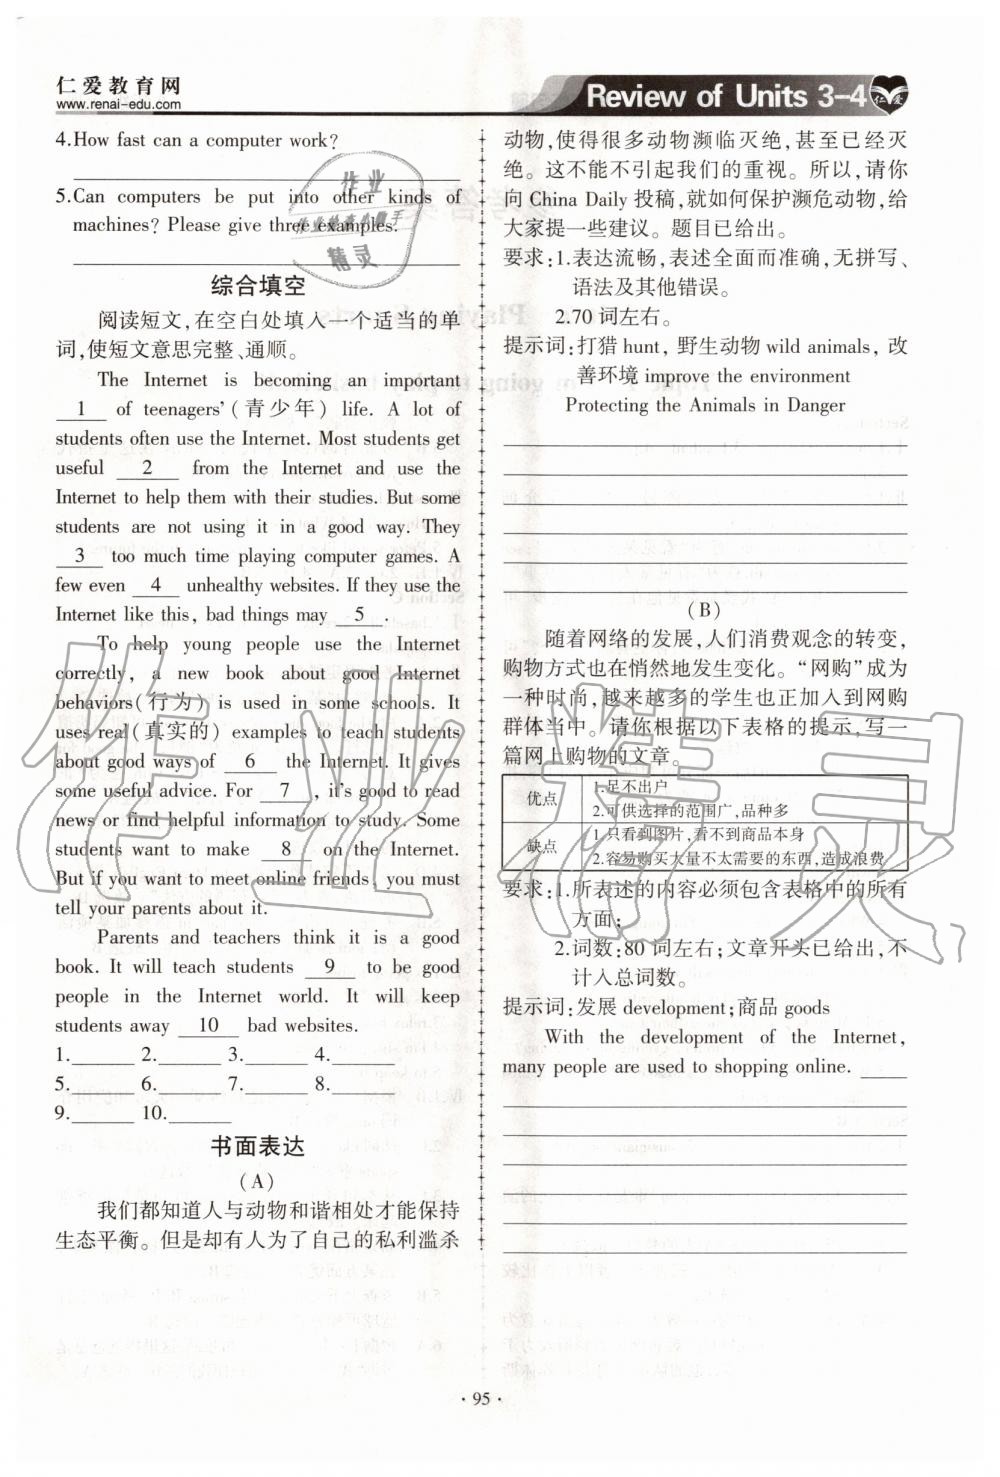 仁爱教育网
www.renai-edu.com
Review of Units 3-4
仁爱
4.How fast can a computer work?
5.Can computers be put into other kinds of
machines? Please give three examples.
综合填空
阅读短文,在空白处填入一个适当的单
词,使短文意思完整、通顺。
The Internet is becoming an important
1 of teenagers'(青少年) life. A lot of
students often use the Internet. Most students get
useful 2 from the Internet and use the
Internet to help them with their studies. But some
students are not using it in a good way. They
3 too much time playing computer games. A
few even 4 unhealthy websites. If they use the
Internet like this, bad things may 5 .
To help young people use the Internet
correctly, a new book about good Internet
behaviors(行为) is used in some schools. It
uses real(真实的) examples to teach students
about good ways of 6 the Internet. It gives
some useful advice. For 7 , it's good to read
news or find helpful information to study. Some
students want to make 8 on the Internet.
But if you want to meet online friends, you must
tell your parents about it.
Parents and teachers think it is a good
book. It will teach students 9 to be good
people in the Internet world. It will keep
students away 10 bad websites.
1.______ 2.______ 3.______ 4.______
5.______ 6.______ 7.______ 8.______
9.______ 10.______
书面表达
(A)
我们都知道人与动物和谐相处才能保持
生态平衡。但是却有人为了自己的私利滥杀
动物,使得很多动物濒临灭绝,甚至已经灭
绝。这不能不引起我们的重视。所以,请你
向 China Daily 投稿,就如何保护濒危动物,给
大家提一些建议。题目已给出。
要求:1.表达流畅,表述全面而准确,无拼写、
语法及其他错误。
2.70 词左右。
提示词:打猎 hunt, 野生动物 wild animals, 改
善环境 improve the environment
Protecting the Animals in Danger
(B)
随着网络的发展,人们消费观念的转变,
购物方式也在悄然地发生变化。“网购”成为
一种时尚,越来越多的学生也正加入到网购
群体当中。请你根据以下表格的提示,写一
篇网上购物的文章。
优点
1.足不出户
2.可供选择的范围广,品种多
缺点
1.只看到图片,看不到商品本身
2.容易购买大量不太需要的东西,造成浪费
要求:1.所表述的内容必须包含表格中的所有
方面;
2.词数:80 词左右;文章开头已给出,不
计入总词数。
提示词:发展 development;商品 goods
With the development of the Internet,
many people are used to shopping online. ____
· 95 ·
作业
精灵
作业精灵